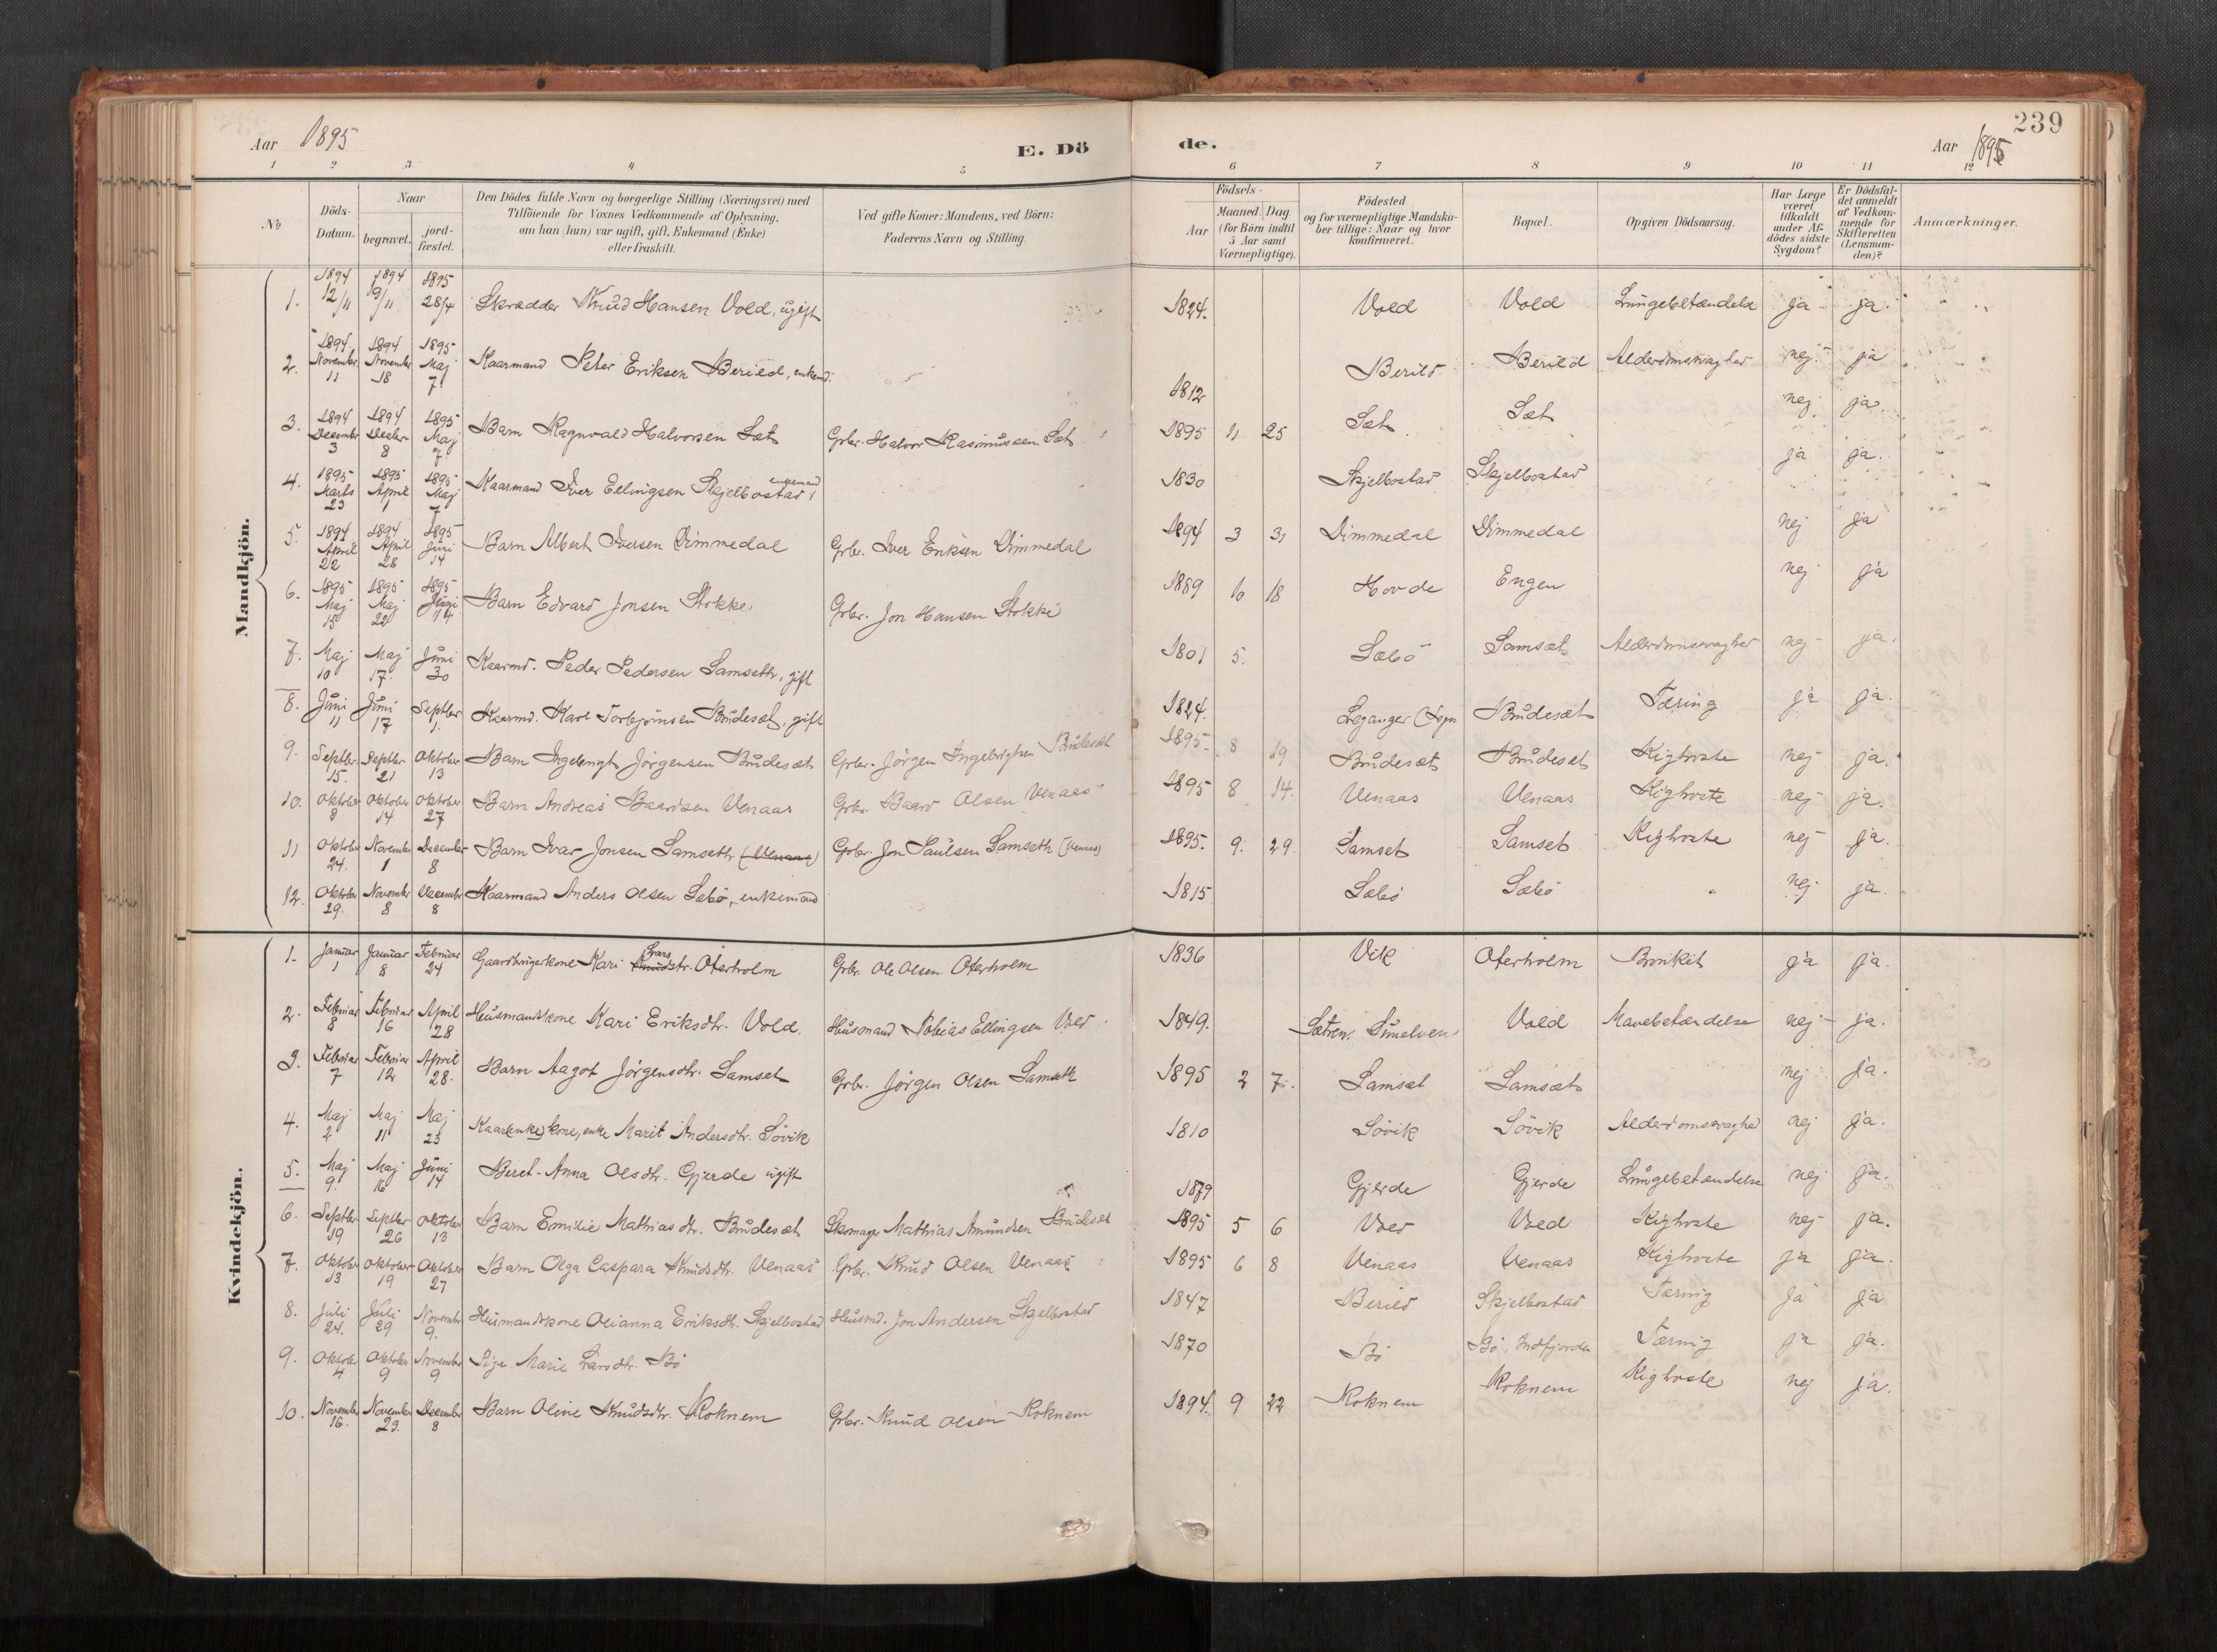 239
Aar 1895 E. Dö de. Aar 1895
1 2 3 4 5 6 7 8 9 10 11 12
No
Döds-Datum.
Naar
begravet.
jord-fæstet.
Den Dödes fulde Navn og borgerlige Stilling (Næringsvei) med
Tilföiende for Voxnes Vedkommende af Oplysning,
om han (hun) var ugift, gift, Enkemand (Enke)
eller fraskilt.
Ved gifte Koner: Mandens, ved Börn:
Faderens Navn og Stilling.
Födsels-
Aar
Maaned. Dag
(for Börn indtil
5 Aar samt
Værnepligtige).
Födested
og for værnepligtige Mandska-
ber tillige: Naar og hvor
konfirmeret.
Bopæl.
Opgiven Dödsaarsag.
Har Læge
været
tilkaldt
under Af-
dödes sidste
Sygdom?
Er Dödsfal-
det anmeldt
af Vedkom-
mende for
Skifteretten
(Lensman-
den)?
Anmærkninger.
Mandkjön.
1. 1894 12/11 1894 19/11 1895 28/4 Skrædder Knud Hansen Vold, ugift 1824. Vold Vold Lungebetændelse ja ja.
2. 1894 November 11 1894 November 18 1895 Maj 7 Kaarmand Peter Eriksen Berild, enkemd. 1812 Berild Berild Alderdomssvaghed nej ja
3. 1894 December 3 1894 December 8 1895 Maj 7. Barn Ragnvald Halvorsen Sæt Grbr. Halvor Rasmussen Sæt 1895 11 25 Sæt Sæt nej ja.
4. 1895 Marts 23 1895 April 1 1895 Maj 7 Kaarmand Iver Ellingsen Skjelbostad, enkemand 1830 Skjelbostad Skjelbostad ja ja.
5. 1894 April 22 1894 April 28 1895 Juni 14 Barn Albert Iversen Dimmedal Grbr. Iver Eriksen Dimmedal 1894 3 31 Dimmedal Dimmedal nej ja
6. 1895 Maj 15 1895 Maj 22 1895 Juni 14 Barn Edvard Jonsen Stokke Grbr. Jon Hansen Stokke 1889 10 18 Hovde Engen nej ja
7. Maj 10 Maj 17. Juni 30 Kaarmd. Peder Pedersen Samseth, gift 1801 5. Sæbö Samsæt Alderdomssvaghed nej ja.
8. Juni 11 Juni 17 Septbr 1. Kaarmd. Karl Torbjönsen Brudesæt, gift 1824. Leganger (Sogn Brudesæt Tæring ja ja.
9. Septbr. 15. Septbr 21 Oktober 13 Barn Ingebrigt Jörgensen Brudesæt Grbr. Jörgen Ingebrigtsen Brudesæt 1895 8 19 Brudesæt Brudesæt Kighoste nej ja.
10. Oktober 8 Oktober 14 Oktober 27 Barn Andreas Baardsen Venaas Grbr. Baard Olsen Venaas 1895 8 14. Venaas Venaas Kighoste nej ja.
11 Oktober 24. November 1 December 8 Barn Ivar Jonsen Samseth (Venaas) Grbr. Jon Paulsen Samseth (Venaas) 1895. 9. 29. Samset Samset Kighoste nej ja.
12. Oktober 29. November 8 December 8 Kaarmand Anders Olsen Sæbö, enkemand 1815 Sæbö Sæbö nej ja.
Kvindekjön.
1. Januar 1 Januar 8 Februar 24 Gaardbrugerkone Kari Knudsdtr. Lars Oterholm Grbr. Ole Olsen Oterholm 1836 Vik Oterholm Bronkit ja ja.
2. Februar 8 Februar 16 April 28 Husmandskone Kari Eriksdtr. Vold. Husmand Tobias Ellingsen Vold 1849. Sætren, Sunelven Vold Mavebetændelse nej ja.
3. Februar 7 Februar 12 April 28. Barn Aagot Jörgensdtr. Samset Grbr. Jörgen Olsen Samseth 1895 2 7. Samset Samsæt nej ja.
4. Maj 2 Maj 11 Maj 23 Kaar(enke)kone, enke Marit Andersdtr. Sövik 1810 Sövik Sövik Alderdomssvaghed nej ja.
5. Maj 9. Maj 16 Juni 14 Beret-Anna Olsdtr. Gjerde ugift 1879 Gjerde Gjerde Lungebetændelse nej ja.
6. Septbr 19 Septbr 26 Oktober 13 Barn Emilie Mathiasdtr. Brudesæt Skomager Mathias Amundsen Brudesæt 1895 5 6 Vold Vold Kighoste nej ja.
7. Oktober 13 Oktober 19 Oktober 27 Barn Olga Caspara Knudsdtr. Venaas Grbr. Knud Olsen Venaas 1895 6 8 Venaas Venaas Kighoste ja ja.
8. Juli 24. Juli 29 November 9. Husmandskone Olianna Eriksdtr. Skjelbostad Husmd. Jon Andersen Skjelbostad 1847 Berild Skjelbostad Tæring ja ja
9. Oktober 4 Oktober 9 November 9 Pige Marie Larsdtr. Bö 1870 Bö Bö, Indfjorden Tæring ja ja.
10. November 16. November 23. December 8 Barn Oline Knudsdtr. Roknem Grbr. Knud Olsen Roknem 1894. 9 22 Roknem Roknem Kighoste nej ja.